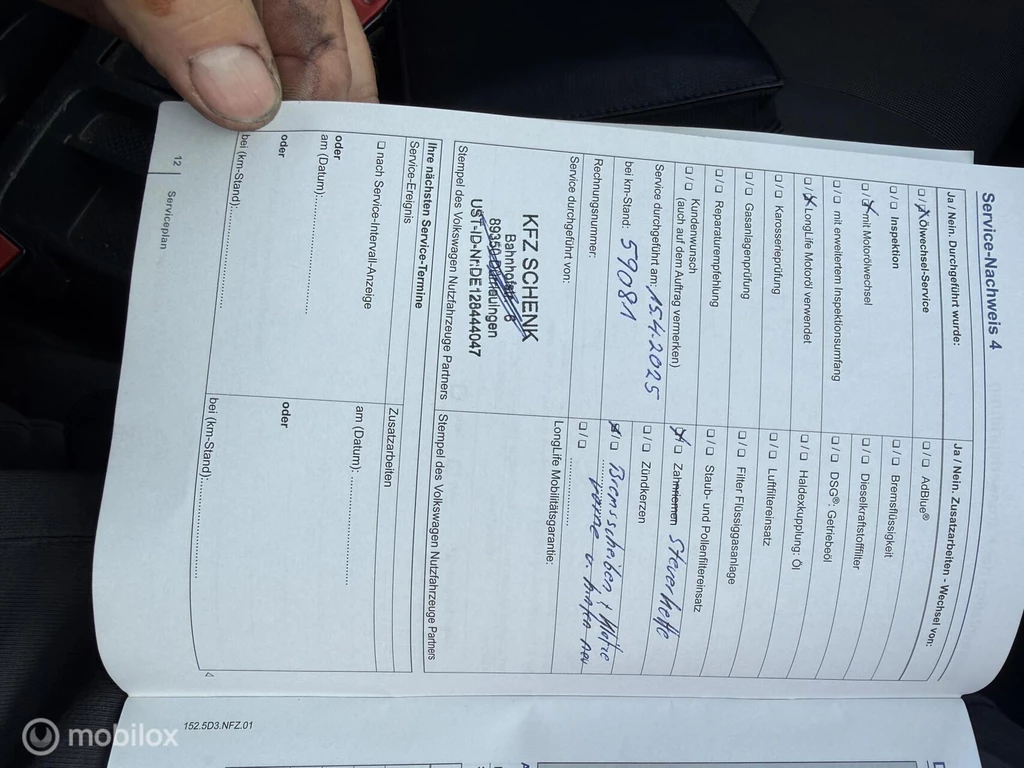 Service-Nachweis 4
Ja / Nein. Durchgeführt wurde:
Ölwechsel-Service
Inspektion
mit Motorölwechsel
mit erweitertem Inspektionsumfang
LongLife Motoröl verwendet
Karosserieprüfung
Gasanlagenprüfung
Reparaturempfehlung
Kundenwunsch
(auch auf dem Auftrag vermerken)
Service durchgeführt am: 15.4.2025
bei km-Stand: 59081
Rechnungsnummer:
Service durchgeführt von:
KFZ SCHENK
Bahnhofstr. 6
89350
USt-ID-Nr.DE128444047
Stempel des Volkswagen Nutzfahrzeuge Partners
Ja / Nein. Zusatzarbeiten - Wechsel von:
AdBlue®
Bremsflüssigkeit
Dieselkraftstofffilter
DSG®: Getriebeöl
Haldexkupplung: Öl
Luftfiltereinsatz
Filter Flüssiggasanlage
Staub- und Pollenfiltereinsatz
Zahnriemen Steuerkette
Zündkerzen
Bremsscheiben + Klötze
vorne u. hinten neu
LongLife Mobilitätsgarantie:
Stempel des Volkswagen Nutzfahrzeuge Partners
Ihre nächsten Service-Termine
Service-Ereignis
nach Service-Intervall-Anzeige
oder
am (Datum):
oder
bei (km-Stand):
Zusatzarbeiten
am (Datum):
oder
bei (km-Stand):
12
Serviceplan
152.5D3.NFZ.01
mobilox